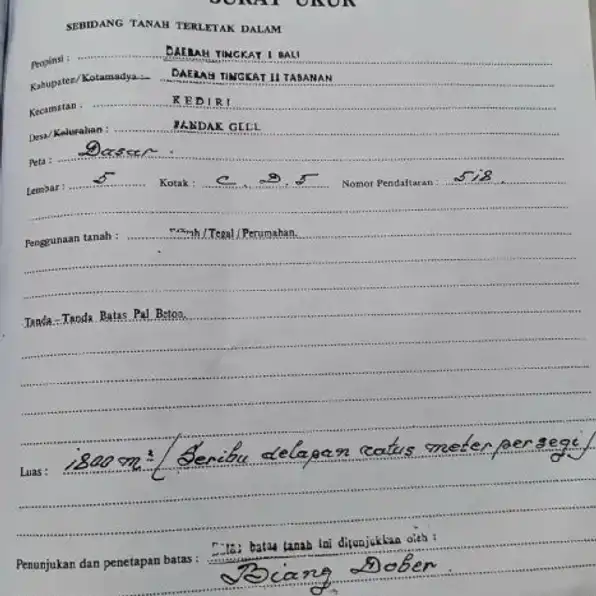 SURAT UKUR
SEBIDANG TANAH TERLETAK DALAM
Propinsi : DAERAH TINGKAT I BALI
Kabupaten/Kotamadya : DAERAH TINGKAT II TABANAN
Kecamatan : KEDIRI
Desa/Kelurahan : PANDAK GEDE
Peta : Dasar .
Lembar : 5 Kotak : C . D . 5 Nomor Pendaftaran : 518 .
Penggunaan tanah : / Tegal / Perumahan.
Tanda - Tanda Batas Pal Beton.
Luas : 1800 m² / Seribu delapan ratus meter persegi /
Penunjukan dan penetapan batas : batas tanah ini ditunjukkan oleh :
Biang Dober .